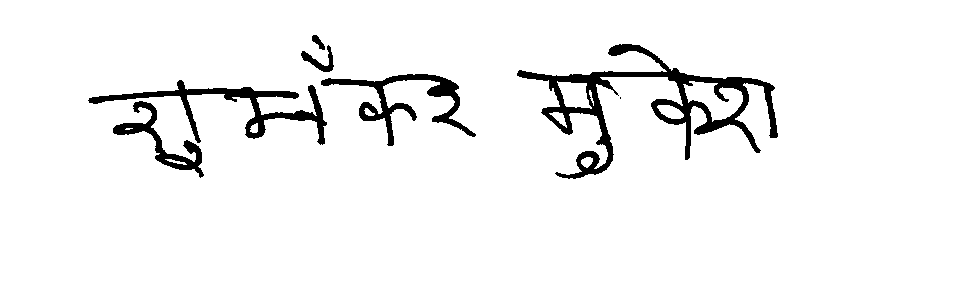 शुभँकर मुकेश